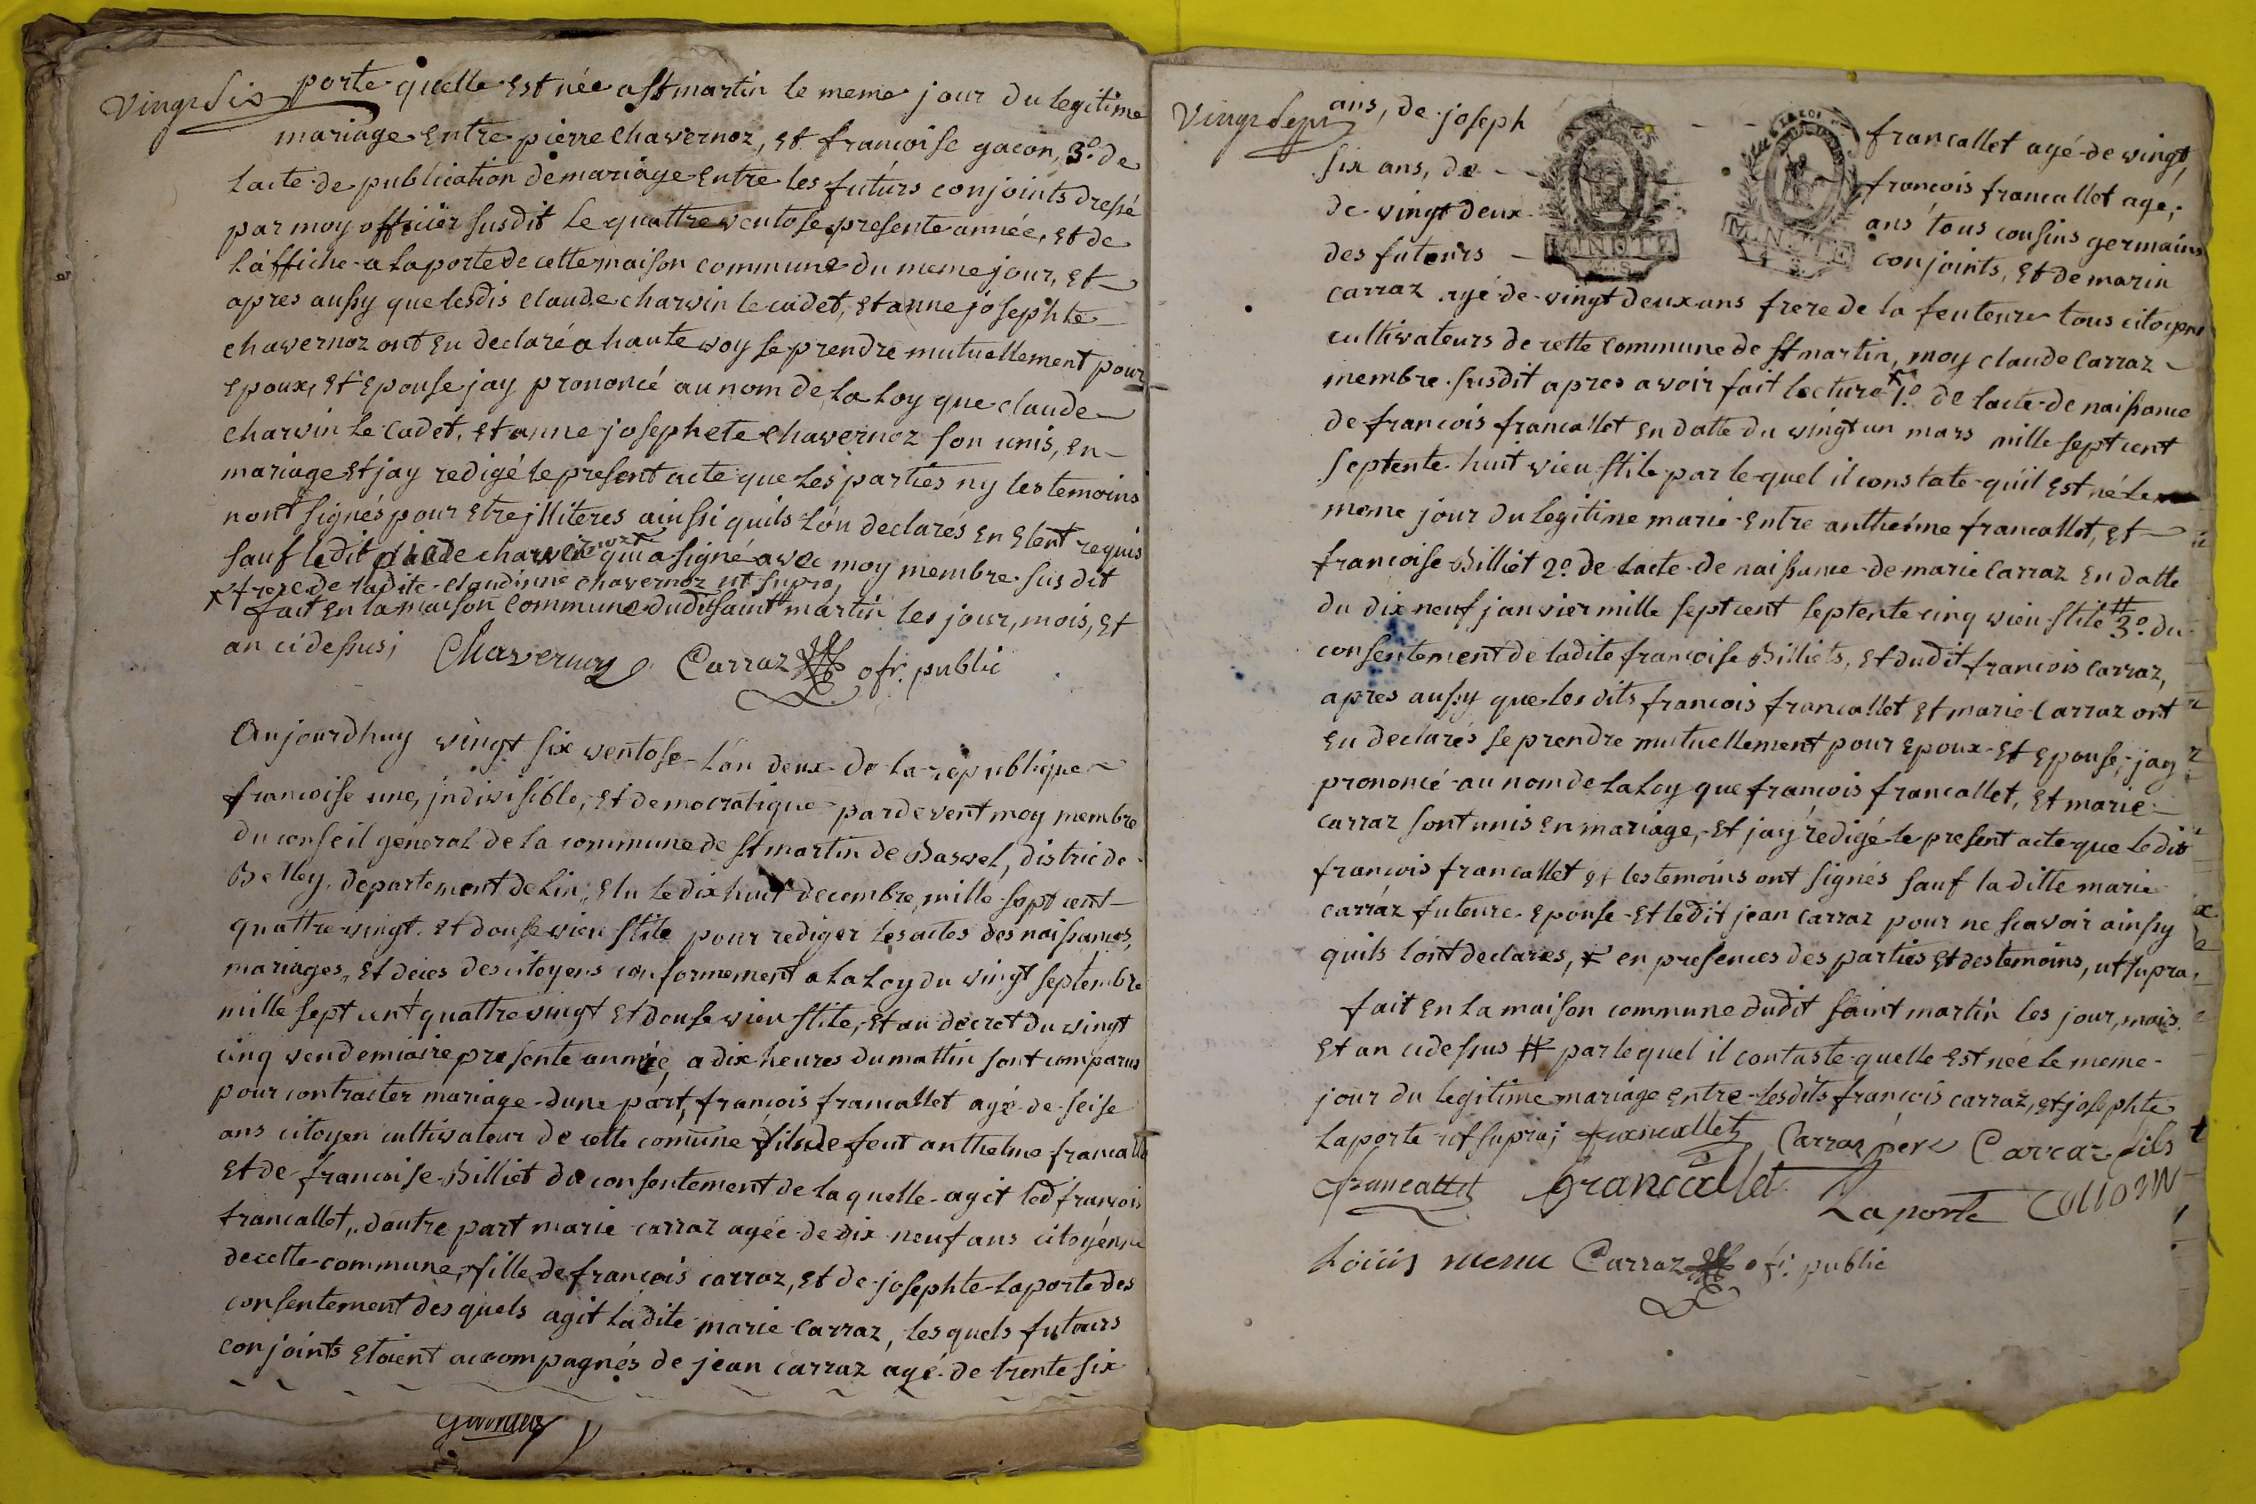 Vingt Six
porte quelle est née a st martin le meme jour du legitime
mariage entre pierre chavernoz, et francoise gacon, 3.º de
lacte de publication de mariage entre les futurs conjoints dressé
par moy officier susdit le quattre ventose presente année, et de
l'affiche a la porte de cette maison commune du meme jour, et
apres aussy que lesdis claude charvin le cadet, et anne josephte
chavernoz ont eu declaré a haute voy se prendre mutuellement pour
epoux, et epouse jay prononcé au nom de la loy que claude
charvin le cadet, et anne josephete chavernoz son unis, en
mariage et jay redigé le present acte que les parties ny les temoins
nont signés pour etre jlliteres ainssi quils lon declarés en etent requis
sauf ledit qui a signé avec moy membre susdit
x frere de ladite claudinne chavernoz ut supra,
fait en la maison commune dudit saint martin les jour, mois, et
an cidessus; Chavernoz Carraz ofr. public
Aujourdhuy vingt six ventose lan deux de la republique
francoise une, jndivisible, et democratique pardevent moy membre
du conseil general de la commune de st martin de Bavel, distric de
Belley, departement de lin, elu le dix huit decembre mille sept cent
quattre vingt et douse vieu stile pour rediger les actes des naissances,
mariages, et déces des citoyens conformement a la loy du vingt septembre
mille sept cent quattre vingt et douse vieu stile, et au decret du vingt
cinq vendemiaire presente année, a dix heures du mattin sont comparus
pour contracter mariage dune part, francois francallet agé de seise
ans citoyen cultivateur de cette comune fils de feut anthelme francallet
et de francoise Billiet du consentement de la quelle agit led francois
francallet, dautre part marie carraz agée de dix neuf ans citoyenne
de cette commune, fille de francois carraz, et de josephte laporte des
consentement des quels agit ladite marie carraz, les quels futeurs
conjoints etoient accompagnés de jean carraz agé de trente six
Vingt Sept
ans, de joseph francallet agé de vingt
six ans, de francois francallet agé,
de vingt deux ans tous cousins germains
des futeurs conjoints, et de marin
MINUTE
MINUTE
carraz agé de vingt deux ans frere de la feuteure tous citoyens
cultivateurs de cette commune de st martin, moy claude carraz
membre susdit apres avoir fait lecture x 1.º de lacte de naissance
de francois francallet en datte du vingt un mars mille sept cent
septente huit vieu stile par le quel il constate quil est né le
meme jour du legitime marié entre anthelme francallet, et
francoise Billiet 2.º de lacte de naissance de marie carraz en datte
du dix neuf janvier mille sept cent septente cinq vieu stile # 3.º du
consentement de ladite francoise Billiets, et dudit francois carraz,
apres aussy que les dits francois francallet et marie carraz ont
eu declarés se prendre mutuellement pour epoux et epouse, jay
prononcé au nom de la loy que francois francallet, et marie
carraz sont unis en mariage, et jay redigé le present acte que ledit
francois francallet et les temoins ont signés sauf la ditte marie
carraz futeure epouse et ledit jean carraz pour ne scavoir ainssy
quils lont declares, x en presences des parties et des temoins, ut supra,
fait en la maison commune dudit saint martin les jour, mois
et an cidessus # par lequel il contaste quelle est née le meme
jour du legitime mariage entre lesdits francois carraz, et josephte
laporte ut supra; francallet Carraz pere Carraz fils
francallet francallet Laporte
Carraz ofi. public